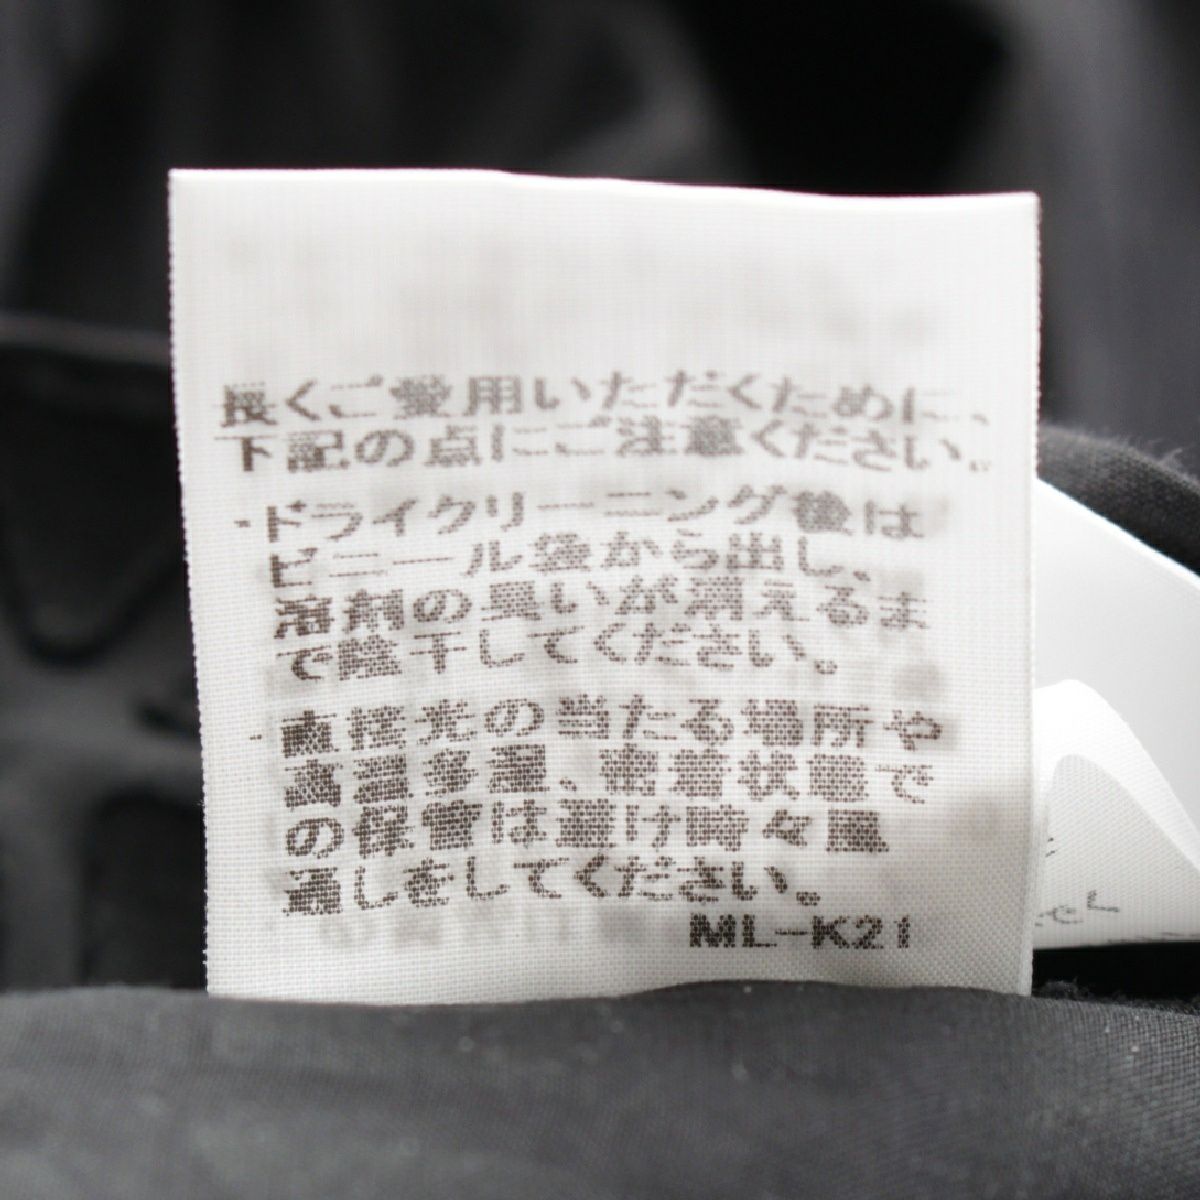 長くご愛用いただくために、
下記の点にご注意ください。
・ドライクリーニング後は
ビニール袋から出し、
溶剤の臭いが消えるま
で陰干してください。
・直接光の当たる場所や
高温多湿、密着状態で
の保管は避け時々風
通しをしてください。
ML-K21